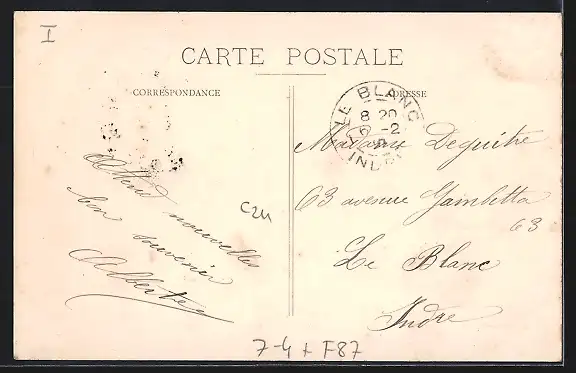 I
CARTE POSTALE
CORRESPONDANCE
ADRESSE
LE BLANC
8 20
6 -2
INDRE
Madame Deguitre
63 avenue Gambetta
63
Le Blanc
Indre
Attend nouvelles
bon souvenir
C24
7-4 + F87